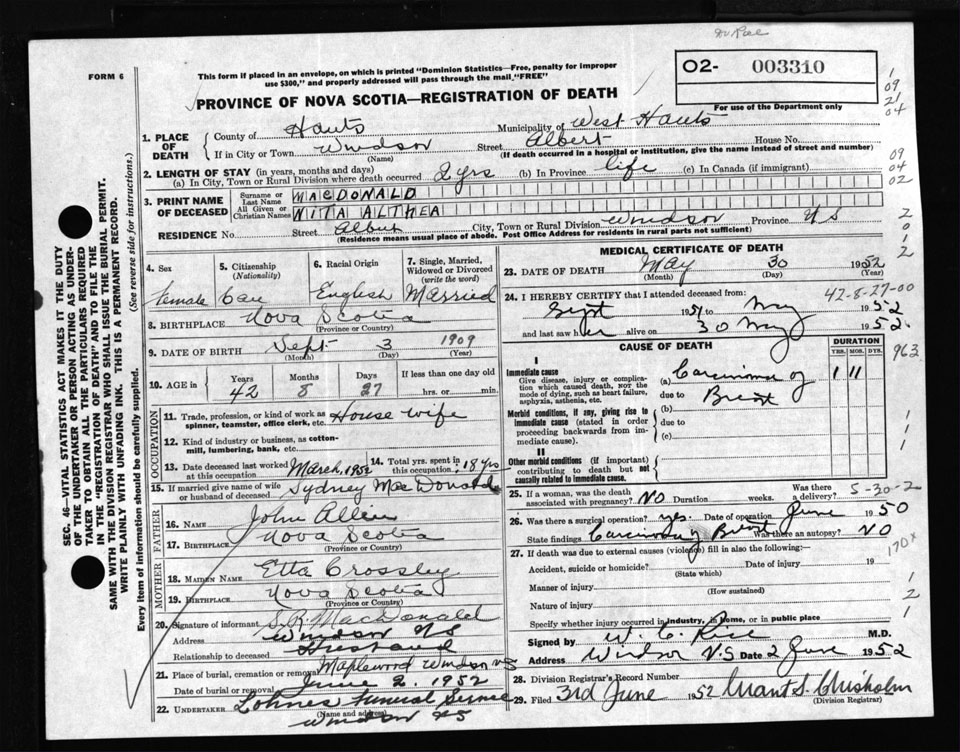 Dr Rice
FORM 6
This form if placed in an envelope, on which is printed "Dominion Statistics—Free, penalty for improper
use $300," and properly addressed will pass through the mail "FREE"
O2- 003310
For use of the Department only
PROVINCE OF NOVA SCOTIA—REGISTRATION OF DEATH
1
09
21
04
1. PLACE OF DEATH
County of Hants Municipality of West Hants
If in City or Town Windsor Street Albert House No.
(Name) (If death occurred in a hospital or institution, give the name instead of street and number)
09
04
02
2. LENGTH OF STAY (in years, months and days)
(a) In City, Town or Rural Division where death occurred 2 yrs (b) In Province life (c) In Canada (if immigrant)
3. PRINT NAME OF DECEASED
Surname or Last Name MACDONALD
All Given or Christian Names NITA ALTHEA
RESIDENCE No. Street Albert City, Town or Rural Division Windsor Province NS
(Residence means usual place of abode. Post Office Address for residents in rural parts not sufficient)
2
0
1
2
SEC. 46—VITAL STATISTICS ACT MAKES IT THE DUTY
OF THE UNDERTAKER OR PERSON ACTING AS UNDER-
TAKER TO OBTAIN ALL THE PARTICULARS REQUIRED
IN THE "REGISTRATION OF DEATH" AND TO FILE THE
SAME WITH THE DIVISION REGISTRAR WHO SHALL ISSUE THE BURIAL PERMIT.
WRITE PLAINLY WITH UNFADING INK. THIS IS A PERMANENT RECORD.
Every item of information should be carefully supplied. (See reverse side for instructions.)
4. Sex female
5. Citizenship (Nationality) Can
6. Racial Origin English
7. Single, Married, Widowed or Divorced (write the word) Married
8. BIRTHPLACE Nova Scotia
(Province or Country)
9. DATE OF BIRTH Sept 3 1909
(Month) (Day) (Year)
10. AGE in Years 42 Months 8 Days 27 If less than one day old hrs. or min.
OCCUPATION
11. Trade, profession, or kind of work as spinner, teamster, office clerk, etc. House wife
12. Kind of industry or business, as cotton-mill, lumbering, bank, etc.
13. Date deceased last worked at this occupation March, 1952 14. Total yrs. spent in this occupation: 18 yrs
15. If married give name of wife or husband of deceased Sydney MacDonald
FATHER
16. NAME John Allen
17. BIRTHPLACE Nova Scotia
(Province or Country)
MOTHER
18. MAIDEN NAME Etta Crossley
19. BIRTHPLACE Nova Scotia
(Province or Country)
20. Signature of informant S. R. MacDonald
Address Windsor NS
Relationship to deceased Husband
21. Place of burial, cremation or removal Maplewood Windsor NS
Date of burial or removal June 2, 1952
22. UNDERTAKER Lohnes Funeral Service
(Name and address)
Windsor NS
MEDICAL CERTIFICATE OF DEATH
23. DATE OF DEATH May 30 1952
(Month) (Day) (Year)
42-8-27-00
24. I HEREBY CERTIFY that I attended deceased from:
Sept 1951 to May 1952
and last saw her alive on 30 May 1952
CAUSE OF DEATH
DURATION
YRS. MOS. DYS.
963
I
Immediate cause
Give disease, injury or complication which caused death, not the mode of dying, such as heart failure, asphyxia, asthenia, etc.
(a) Carcinoma of 1 11
due to Breast
Morbid conditions, if any, giving rise to immediate cause (stated in order proceeding backwards from immediate cause).
(b)
due to
(c)
1
1
1
II
Other morbid conditions (if important) contributing to death but not causally related to immediate cause.
25. If a woman, was the death associated with pregnancy? NO Duration weeks. Was there a delivery?
5-30-2
26. Was there a surgical operation? yes. Date of operation June 1950
State findings Carcinoma of Breast Was there an autopsy? NO
170x
27. If death was due to external causes (violence) fill in also the following:—
Accident, suicide or homicide? Date of injury 19
(State which)
Manner of injury
(How sustained)
Nature of injury
Specify whether injury occurred in industry, in home, or in public place
1
2
1
Signed by W. C. Rice M.D.
Address Windsor N.S Date 2 June 1952
28. Division Registrar's Record Number
29. Filed 3rd June 1952 Grant S. Chisholm
(Division Registrar)